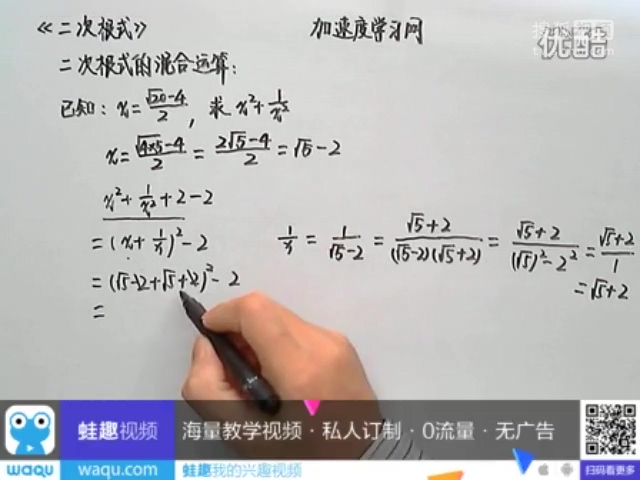 《二次根式》 加速度学习网
优酷
二次根式的混合运算:
已知: x=(√20-4)/2, 求 x²+1/x²
x=(√(4×5)-4)/2=(2√5-4)/2=√5-2
x²+1/x²+2-2
=(x+1/x)²-2
1/x=1/(√5-2)=(√5+2)/((√5-2)(√5+2))=(√5+2)/((√5)²-2²)=(√5+2)/1
=√5+2
=(√5-2+√5+2)²-2
=
蛙趣视频 海量教学视频·私人订制·0流量·无广告
waqu waqu.com 蛙趣我的兴趣视频 扫码看更多